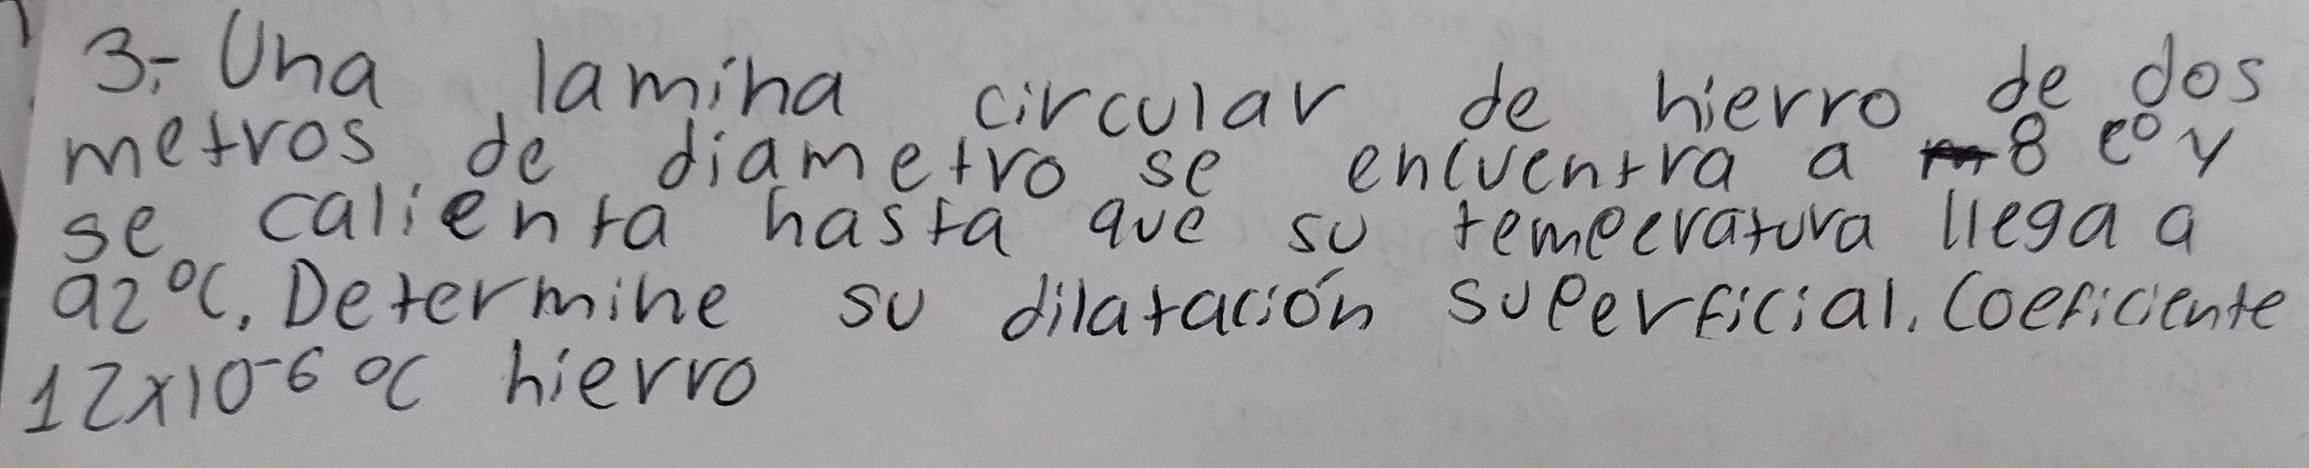 3.- Una lamina circular de hierro de dos
metros de diametro se encuentra a -8 c° y
se calienta hasta que su temperatura llega a
92°C. Determine su dilatación superficial. Coeficiente
12x10-6 °C hierro